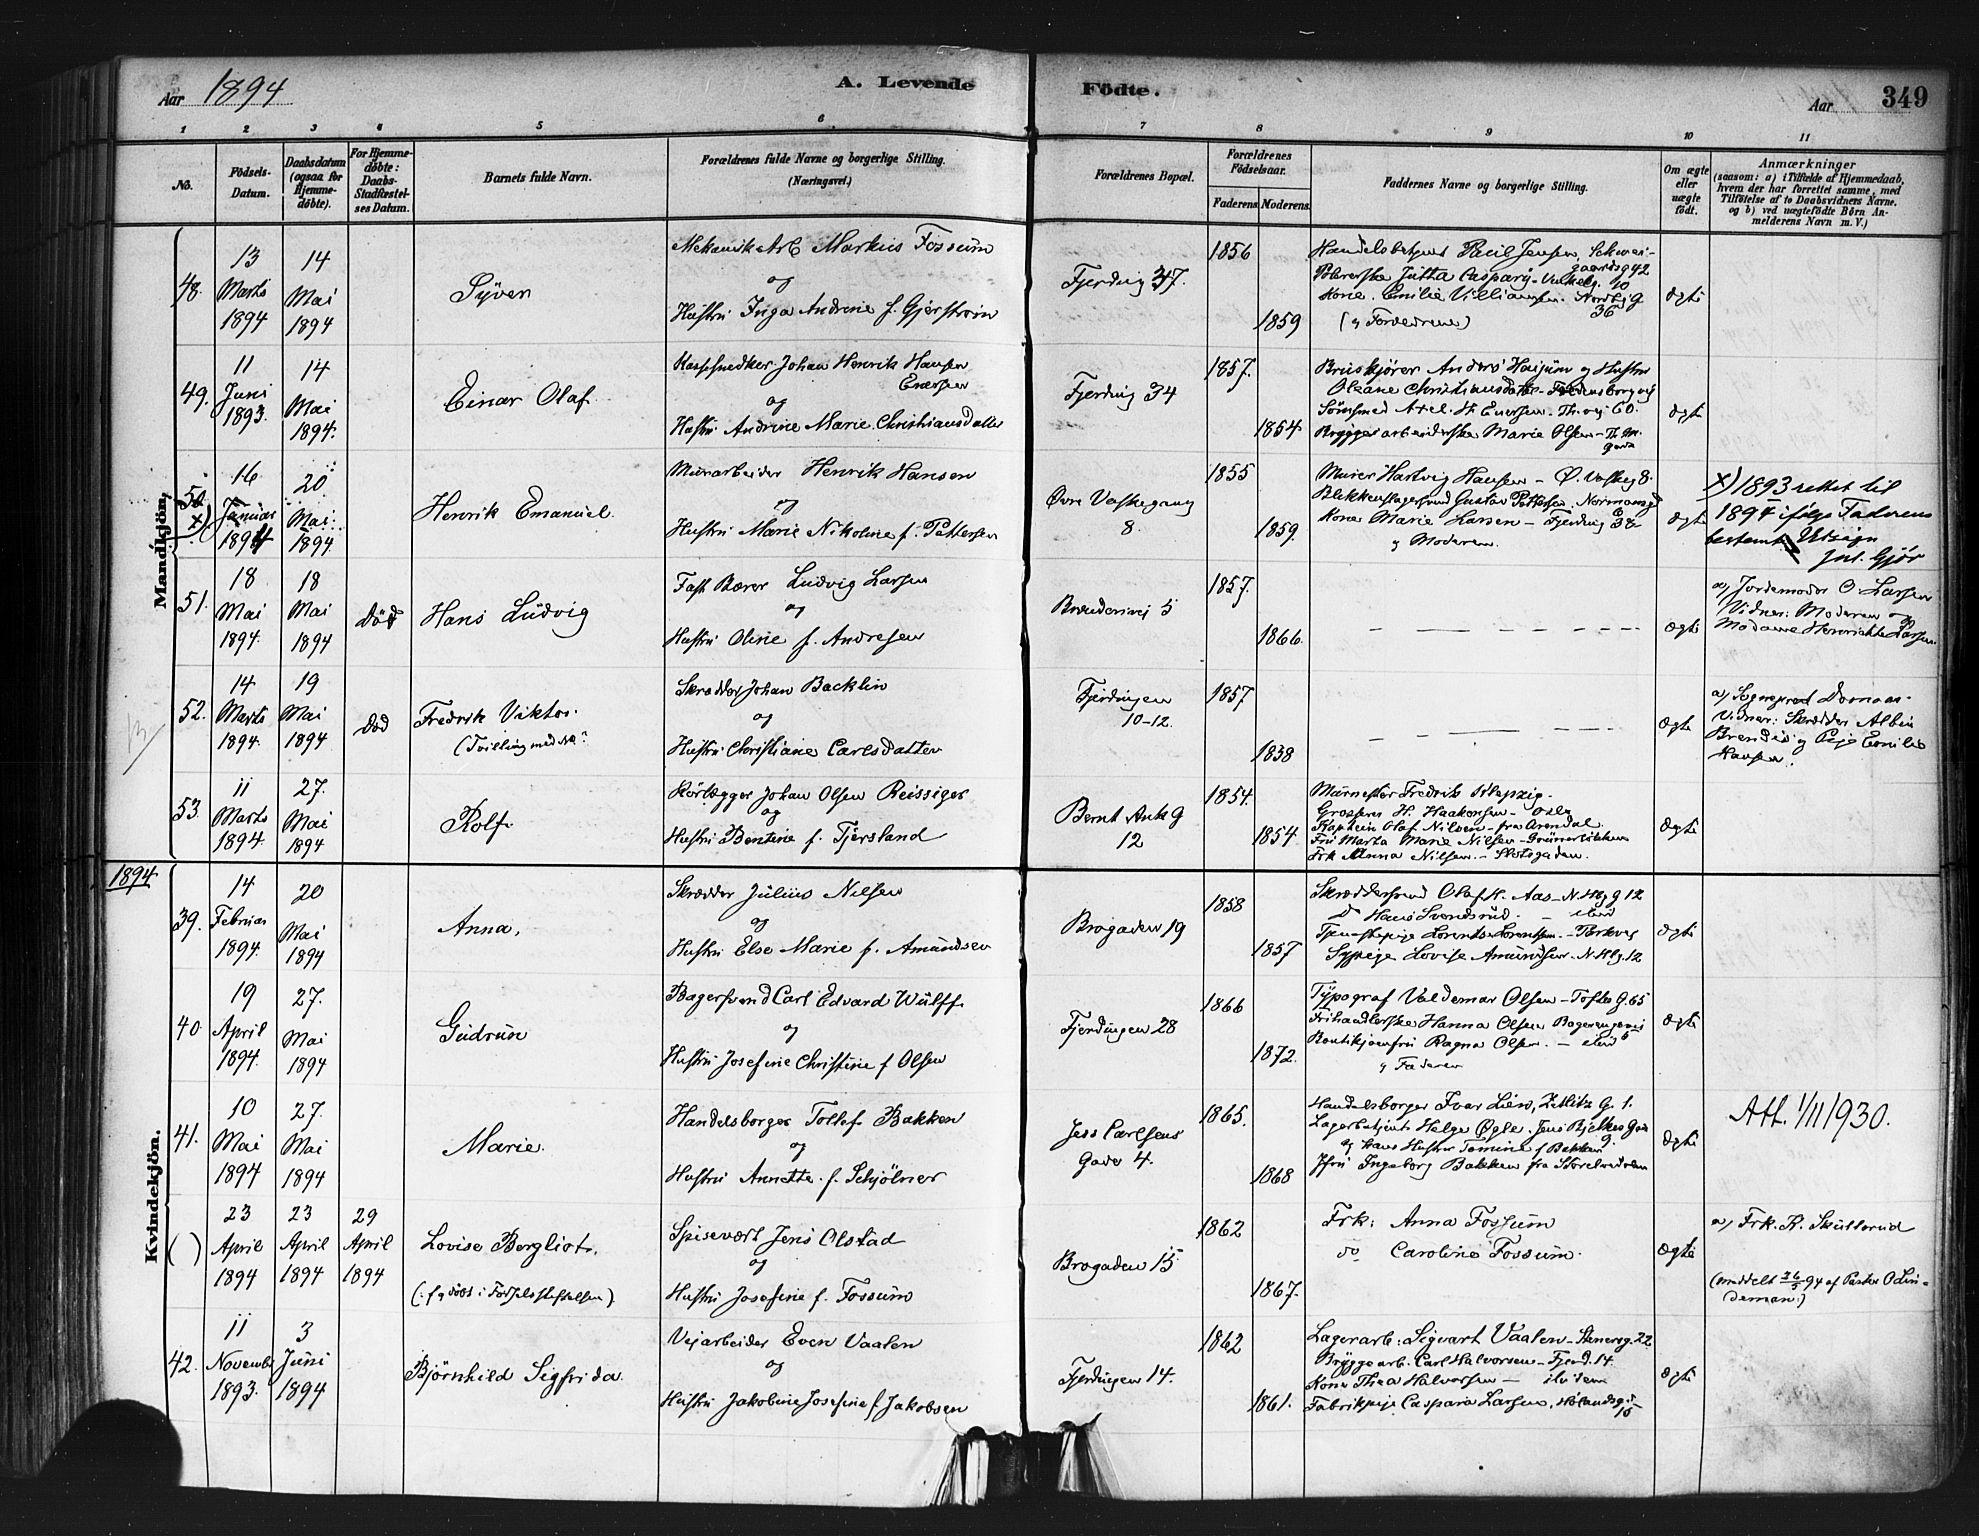 Aar 1894
A. Levende
Födte.
Aar
349
1 2 3 4 5 6 7 8 9 10 11
No.
Födsels-Datum.
Daabsdatum (ogsaa for Hjemme-döbte).
For Hjemme-döbte: Daabs-Stadfæstel-ses Datum.
Barnets fulde Navn.
Forældrenes fulde Navne og borgerlige Stilling.
(Næringsvei.)
Forældrenes Bopæl.
Forældrenes Födselsaar.
Faderens Moderens
Faddernes Navne og borgerlige Stilling.
Om ægte eller uægte födt.
Anmærkninger
(saasom: a) i Tilfælde af Hjemmedaab,
hvem der har forrettet samme, med
Tilföielse af to Daabsvidners Navne.
og b) ved uægtefödte Börn An-
melderens Navn m. V.)
Mandkjön.
48. 13 Marts 1894
14 Mai 1894
Syver
Mekanisk Arb Markus Fossum
og
Hustru Inga Andrine f. Gjerstrøm
Fjerding 37.
1856
1859
Handelsbetjent Paul Jensen, Schwei-
gaardsg 42
Polererske Jutta Caspary
Kone Emilie Villiamsen. Nordbyg
36
(og Forældrene)
ægte
49. 11 Juni 1893.
14 Mai 1894.
Einar Olaf
Johan Henrik Hansen
Enersen
og
Hustru Andrine Marie Christiansdatter
Fjerding 34
1857.
1854
Oleane Christiansdatter
Axel H. Enersen 60.
Bryggeriarbeiderske Marie Olsen
ægte
50 x) 16 Januar 1894
20 Mai 1894
Henrik Emanuel
Murarbeider Henrik Hansen
og
Hustru Marie Nikoline f. Pettersen
Øvre Vaskegang
8.
1855
1859.
Murer Hartvig Hansen – Ø. Vaskeg 8.
Blikkenslagersvend Gustav Pettersen
Kone Marie Larsen – Fjerding 38
og Moderen.
ægte
x) 1893 rettet til
1894 ifølge Faderens
bestemte Utsagn
Jul. Gjør
51. 18 Mai 1894.
18 Mai 1894
død
Hans Ludvig
Fast Bærer Ludvig Larsen
og
Hustru Oline f. Andresen
Brænderivej 5
1857.
1866.
ægte
a) Jordemoder O. Larsen
Vidner: Moderen og
Madame Henriette Larsen
52. 14 Marts 1894.
19 Mai 1894
død
Fredrik Viktor
(Tvilling med No ?
Skrædder Johan Backlin
og
Hustru Christiane Carlsdatter
Fjerdingen
10-12.
1857
1838
ægte
a) Sogneprest
Vidner: Skrædder Albin
Pige Emilie
Hansen.
53. 11 Marts 1894
27. Mai 1894
Rolf
Rørlægger Johan Olsen Reissiger
og
Hustru Bentine f. Tjersland
Bernt Ankg
12
1854.
1854
Murmester Fredrik
Grosserer H. Haakonsen – Oslo
Kaptein Olaf Nilsen – fra Arendal
Fru Marta Marie Nilsen – Grünerløkken
Frk Anna Nilsen. – Slotsgaden.
ægte
1894
Kvindekjön.
39. 14 Februar 1894.
20 Mai 1894
Anna.
Skrædder Julius Nilsen
og
Hustru Else Marie f. Amundsen
Brogaden 19
1858
1857
Skræddersvend Olaf H. Aas – N. Hbg 12
Do Hans Svendsrud. – etsd
Tjenestepige Lorentse Lorentsen
Sypige Lovise Amundsen. N. Hbg. 12
ægte
40. 19 April 1894.
27. Mai 1894
Gudrun
Bagersvend Carl Edvard Wulff
og
Hustru Josefine Christine f Olsen
Fjerdingen 28
1866
1872.
Typograf Valdemar Olsen – Toftes G. 65
Frihandlerske Hanna Olsen
Butikjomfru Ragna Olsen. – etsd
og Faderen
ægte
41. 10 Mai 1894
27. Mai 1894
Marie.
Handelsborger Tollef Bakken
og
Hustru Annette f. Schjølner
Jess Carlsens
Gade 4.
1865.
1868
Handelsborger Ivar Lien, Zetlitz G. 1.
Lagerbetjent Helge Øgle. Jens Bjelkes Gade
og hans Hustru Tomine f Bakken
Jfru Ingeborg Bakken fra Storelvedalen
ægte
Att. 1/11 1930.
( ) 23 April 1894
23 April 1894
29 April 1894
Lovise Bergliot.
(: født i Fødselsstiftelsen)
Spisevært Jens Olstad
og
Hustru Josefine f. Fossum
Brogaden 15
1862
1867.
Frk: Anna Fossum
do Caroline Fossum.
ægte
a) Frk. R. Skullerud
(meddelt 26/5 94 af Pastor O Lin-
deman:)
42. 11 November 1893.
3 Juni 1894
Bjørnhild Sigfrida
Vejarbeider Even Vaalen
og
Hustru Jakobine Josefine f Jakobsen
Fjerdingen 14.
1862
1861.
Lagerarb: Sigvart Vaalen – Stenersg. 22
Bryggearb. Carl Halvorsen – Fjerd. 14.
Kone Thea Halvorsen – ibidem
Fabrikpige Caspara Larsen, Hølandsg
15
ægte